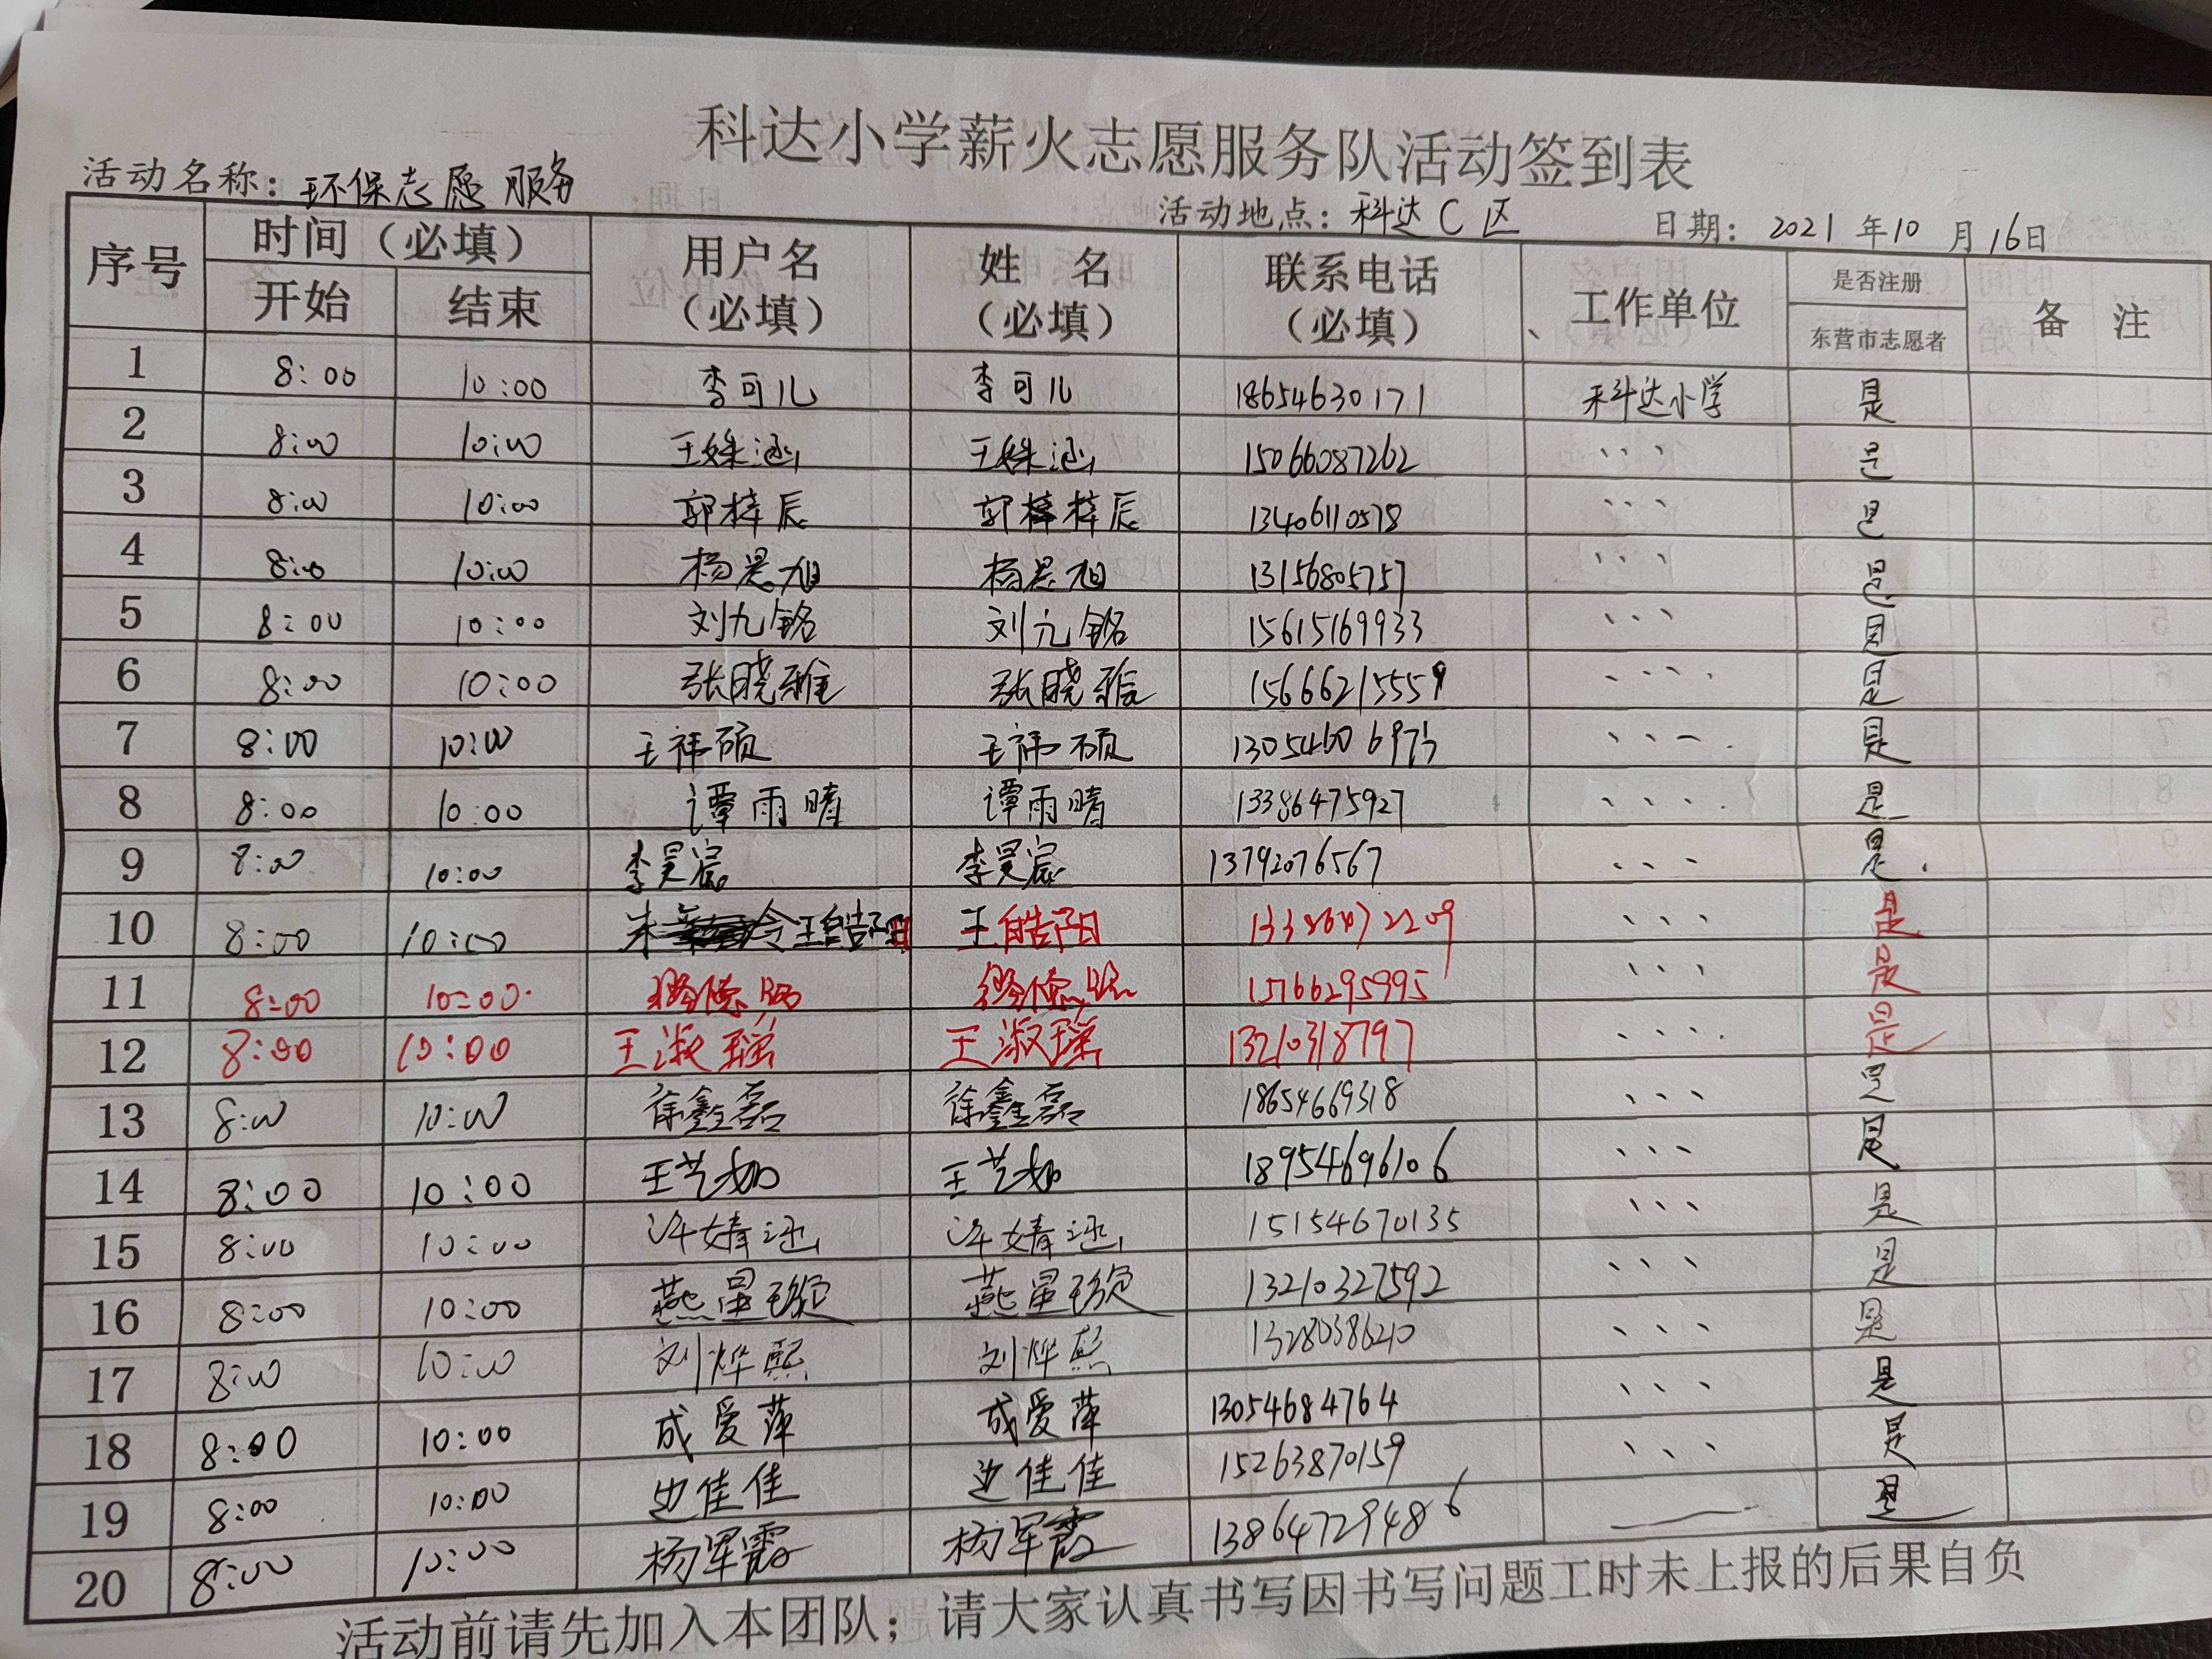 科达小学薪火志愿服务队活动签到表
活动名称：环保志愿服务 活动地点：科达C区 日期：2021年10月16日
序号 时间（必填） 用户名（必填） 姓 名（必填） 联系电话（必填） 工作单位 是否注册 备 注
开始 结束 东营市志愿者
1 8:00 10:00 李可儿 李可儿 18654630171 科达小学 是
2 8:00 10:00 王姝涵 王姝涵 15066087262 、、、 是
3 8:00 10:00 郭梓辰 郭梓辰 13406110578 、、、 是
4 8:00 10:00 杨思旭 杨思旭 13156805757 、、、 是
5 8:00 10:00 刘九铭 刘元铭 15615169933 、、、 是
6 8:00 10:00 张晓雅 张晓雅 15666215559 、、、 是
7 8:00 10:00 王祎硕 王祎硕 是
8 8:00 10:00 谭雨晴 谭雨晴 13386475927 、、、、 是
9 8:00 10:00 李昊宸 李昊宸 13792076567 、、、 是
10 8:00 10:00 王皓阳 王皓阳 、、、 是
11 8:00 10:00 15766295995 、、、 是
12 8:00 10:00 王淑瑶 王淑瑶 13210318797 、、、 是
13 8:00 10:00 徐鑫磊 徐鑫磊 18654669318 、、、 是
14 8:00 10:00 王艺如 王艺如 18954696106 、、、 是
15 8:00 10:00 许婧涵 许婧涵 15154670135 、、、 是
16 8:00 10:00 燕星 燕星 13210327592 、、、 是
17 8:00 10:00 刘烨熙 刘烨熙 13280386210 、、、 是
18 8:00 10:00 成爱萍 成爱萍 13054684764 、、、 是
19 8:00 10:00 边佳佳 边佳佳 15263870159 、、、 是
20 8:00 10:00 杨军霞 杨军霞 13864729486 是
活动前请先加入本团队；请大家认真书写因书写问题工时未上报的后果自负